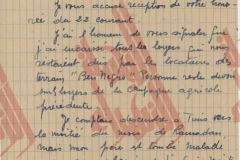 Je vous accuse reception de votre hono-
rée du 22 courant.
J'ai l'honneur de vous signaler que
j'ai encaissé tous les loyers qui nous
restaient dus par les locataires des
terrains "Ben Negro". Personne reste devoir
sur loyers de la campagne agricole
precedente.
Je comptais descendre à Tunis vers
la moitié du mois de Ramadan,
mais mon père est tombé malade